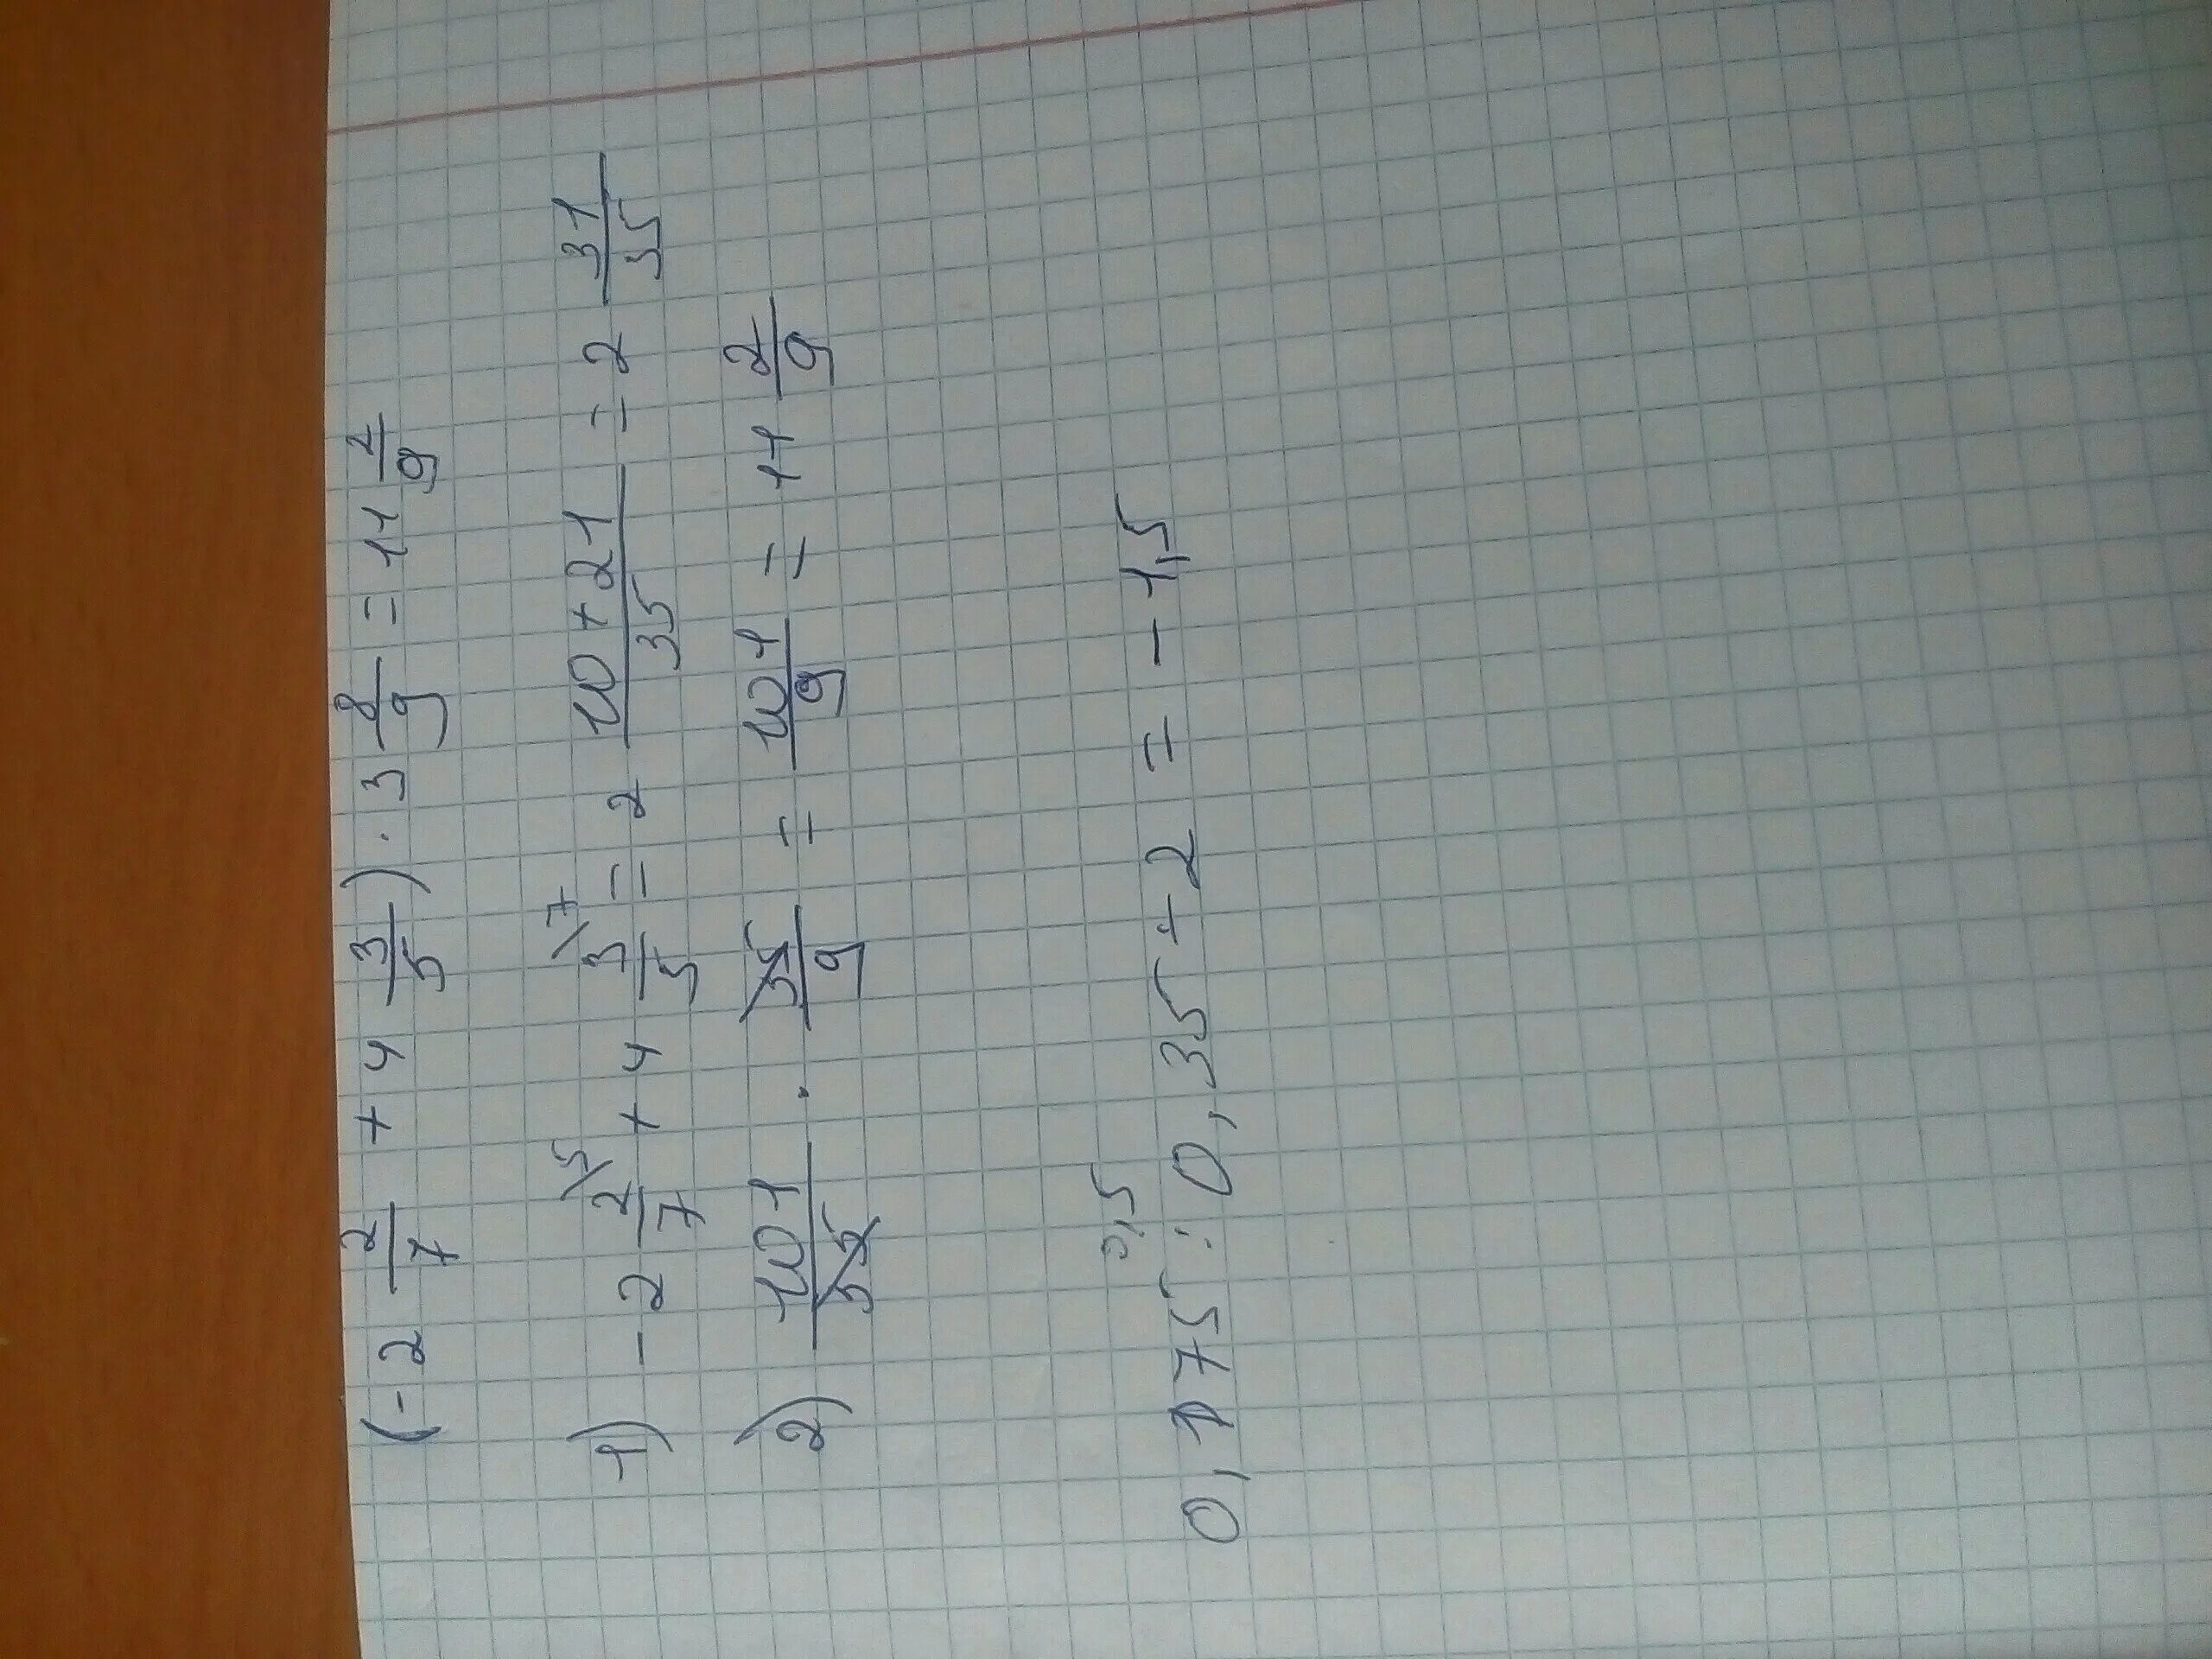 (-2 2/7 + 4 3/5) · 3 8/9 = 11 2/9
1) -2 2/7 \5 + 4 3/5 \7 = 2 10+21/35 = 2 31/35
2) 101/35 · 35/9 = 101/9 = 11 2/9
0,5
0,175 : 0,35 + 2 = - 1,5